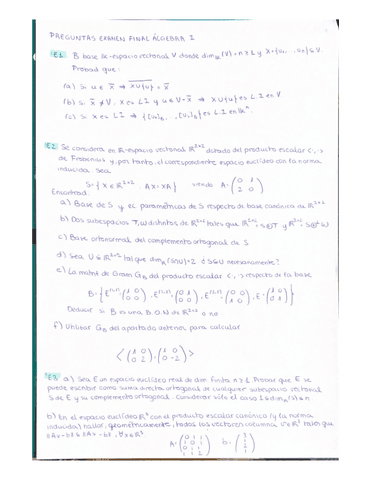 PREGUNTAS EXAMEN FINAL ÁLGEBRA I
E1. B base de espacio vectorial V donde dim_R(V)=n≥1 y X={u₁, ... uₛ}⊆V.
Probad que:
(a) Si u ∈ X̄ ⇒
(b) si X̄ ≠ V, X es LI y u ∈ V-X̄ ⇒ X∪{u} es LI en V
(c) si X es LI ⇒ es LI en
E2. Se considera en R-espacio vectorial R²ˣ² dotado del producto escalar <,>
de Frobenius y, por tanto, el correspondiente espacio euclídeo con la norma
inducida. Sea
S={X∈R²ˣ² AX=XA} siendo A=
Encontrad.
a) Base de S y ec. paramétricas de S respecto de base canónica de R²ˣ²
b) Dos subespacios T, W distintos de R²ˣ² tales que R²ˣ²=S⊕T y R²ˣ²=S⊕W
c) Base ortonormal del complemento ortogonal de S
d) Sea U⊆R²ˣ² tal que dim_R(S∩U)=2 ¿S⊆U necesariamente?
e) La matriz de Gram G_B del producto escalar <,> respecto de la base
B=
Deducir si B es una B.O.N de R²ˣ² o no
f) Utilizar G_B del apartado anterior para calcular
E3. a) Sea E un espacio euclídeo real de dim finita n≥1. Probar que E se
puede escribir como suma directa ortogonal de cualquier subespacio vectorial
S de E y su complemento ortogonal. Considerar sólo el caso 1≤dim_R(S)≤n.
b) En el espacio euclídeo con el producto escalar canónico (y la norma
inducida) hallar, geométricamente, todos los vectores columna tales que
A= b=